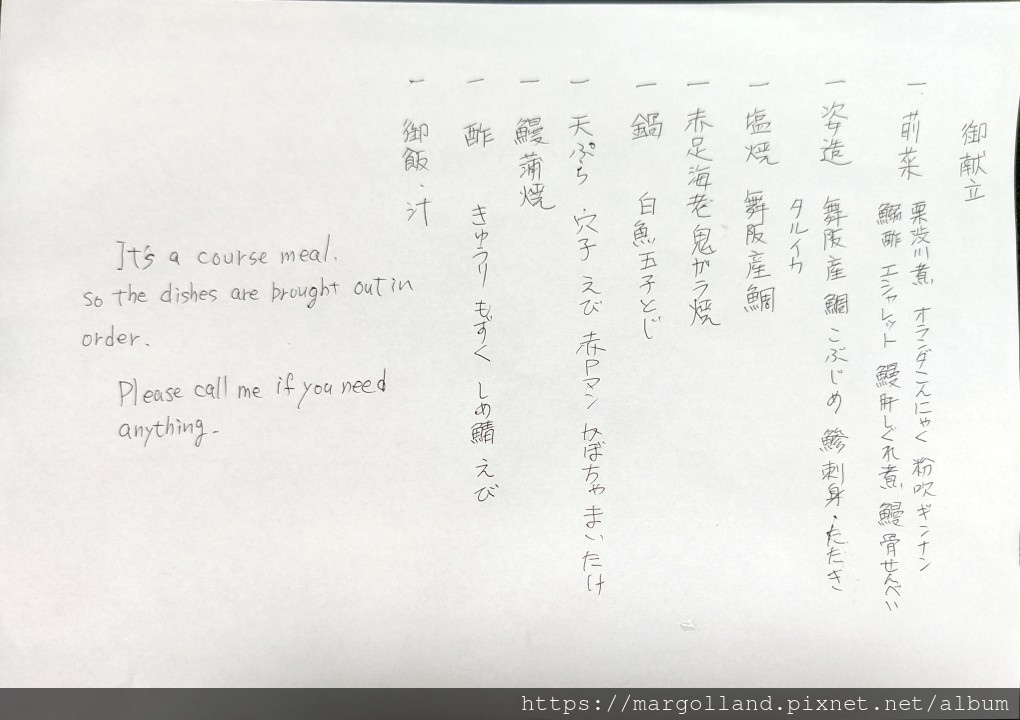 御献立
一 前菜 栗渋川煮 オランダこんにゃく 粉吹ギンナン
鰯酢 エシャレット 鰻肝しぐれ煮 鰻骨せんべい
一 姿造 舞阪産 鯛 こぶじめ 鯵刺身・たたき
タルイカ
一 塩焼 舞阪産鯛
一 赤足海老鬼ガラ焼
一 鍋 白魚玉子とじ
一 天ぷら 穴子 えび 赤Pマン かぼちゃ まいたけ
一 鰻蒲焼
一 酢 きゅうり もずく しめ鯖 えび
一 御飯・汁
It's a course meal.
so the dishes are brought out in
order.
Please call me if you need
anything.
https://margolland.pixnet.net/album